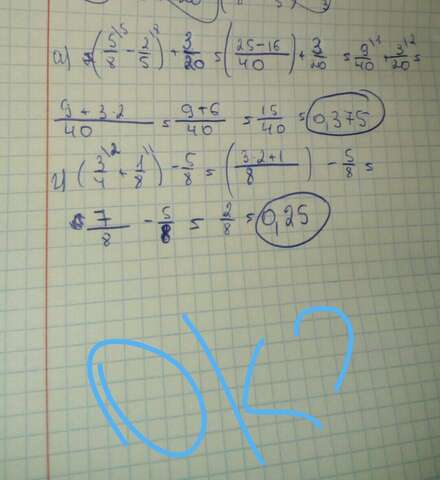 а) (5\5/8 − 2\8/5) + 3/20 = (25−16/40) + 3/20 = 9\1/40 + 3\2/20 =
9 + 3·2/40 = 9+6/40 = 15/40 = 0,375
г) (3\2/4 + 1\1/8) − 5/8 = (3·2+1/8) − 5/8 =
= 7/8 − 5/8 = 2/8 = 0,25
OK?